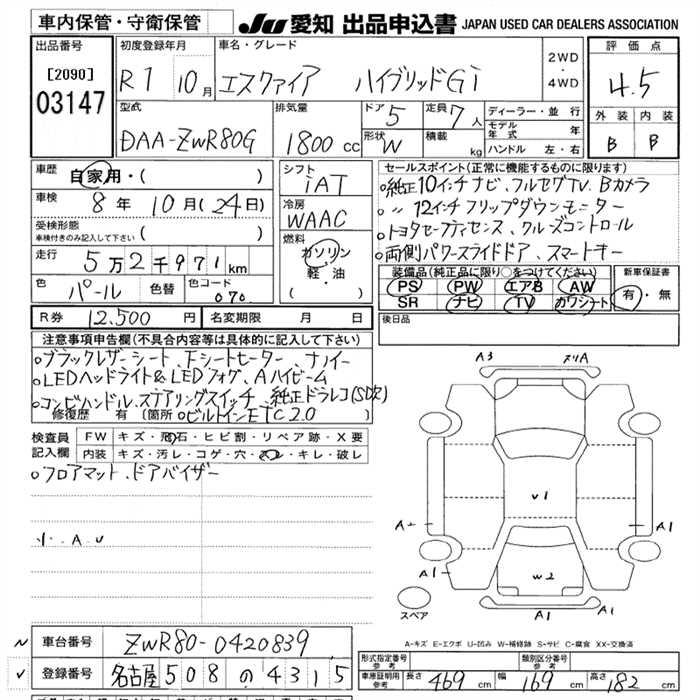 車内保管・守衛保管
JU 愛知 出品申込書 JAPAN USED CAR DEALERS ASSOCIATION
出品番号
[2090]
03147
初度登録年月
R1 10月
車名・グレード
エスクァイア ハイブリッドGi
2WD
・
4WD
評価点
4.5
外装 内装
B B
型式
DAA-ZWR80G
排気量
1800 cc
ドア 5
形状 W
定員 7人
積載 kg
ディーラー・並行
モデル年式 年
ハンドル 左・右
車歴
自家用・( )
車検
8年 10月(24日)
受検形態
車検付きのみ記入して下さい ( )
走行
5万2千971km
色 パール 色替
色コード 070
シフト
iAT
冷房
WAAC
燃料
ガソリン
軽・油
( )
セールスポイント(正常に機能するものに限ります)
○純正10インチナビ、フルセグTV、Bカメラ
○〃12インチフリップダウンモニター
○トヨタセーフティセンス、クルーズコントロール
○両側パワースライドドア、スマートキー
装備品(純正品に限り○をつけてください)
PS PW エアB AW
SR ナビ TV カワシート
新車保証書
有・無
R券 12,500円 名変期限 月 日
後日品
注意事項申告欄(不具合内容等は具体的に記入して下さい)
○ブラックレザーシート、Fシートヒーター、ナノイー
○LEDヘッドライト&LEDフォグ、Aハイビーム
○コンビハンドル、ステアリングスイッチ、純正ドラレコ(SD欠)
修復歴 有 [箇所 ○ビルトインETC2.0 ]
検査員記入欄
FW キズ・飛石・ヒビ割・リペア跡・X要
内装 キズ・汚レ・コゲ・穴・スレ・キレ・破レ
○フロアマット、ドアバイザー
小.A.U
A3 スリA
V1
A2 A1
A1 W2 A1
A1 A1
スペア
A-キズ E-エクボ U-凹み W-補修跡 S-サビ C-腐食 XX-交換済
車台番号 ZWR80-0420839
登録番号 名古屋 508 の 4315
形式指定番号 参考
類別区分番号 参考
車庫証明用 参考 長さ 469 cm 幅 169 cm 高さ 182 cm